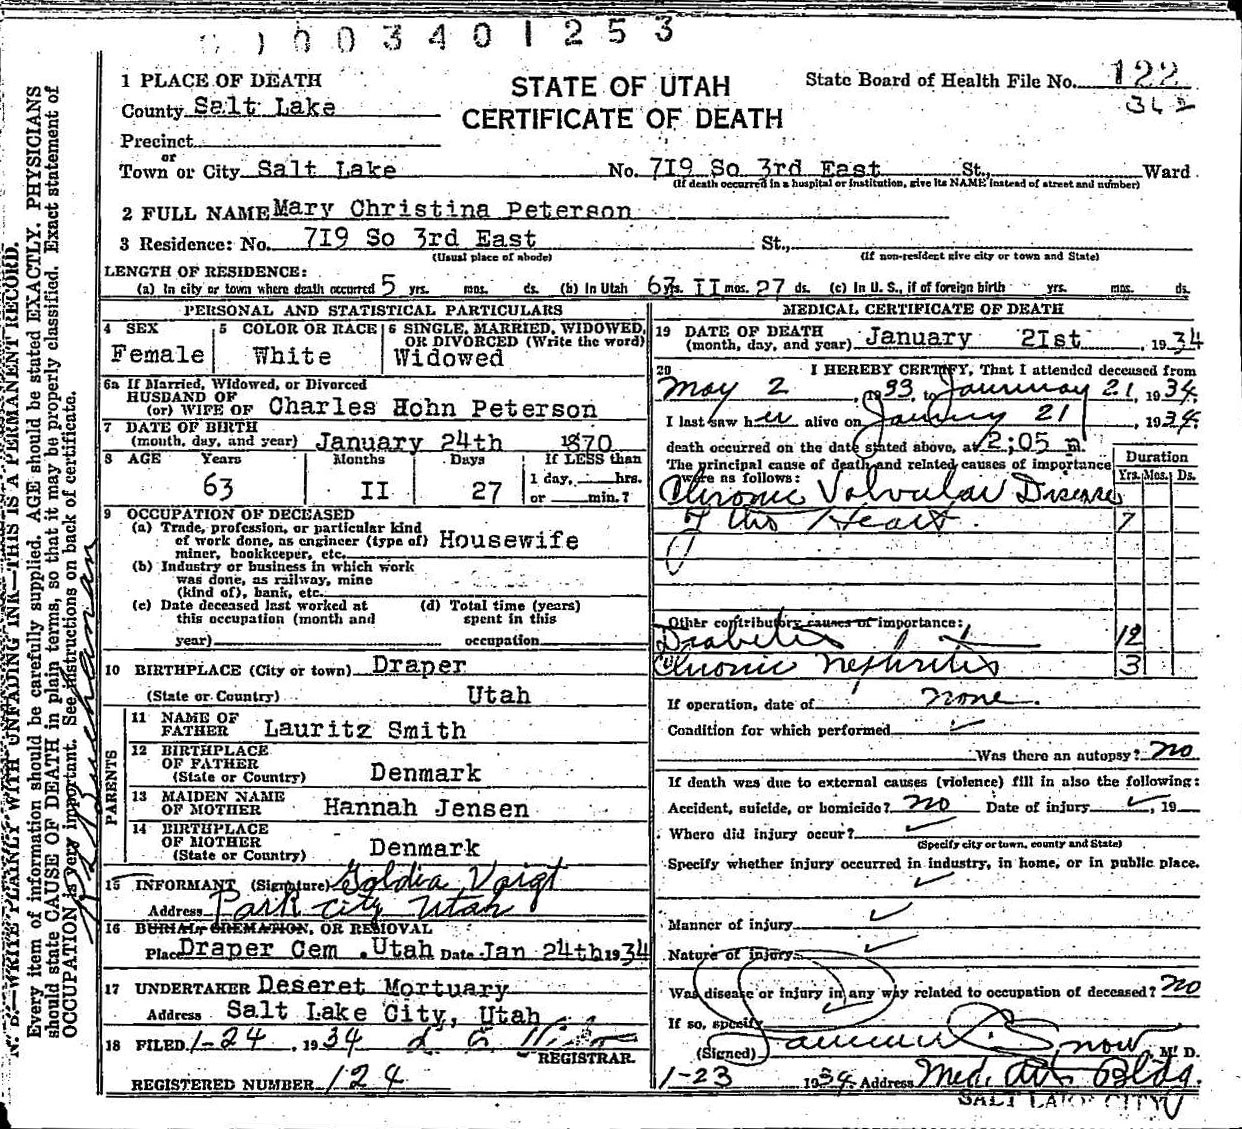 0 0 3 4 0 1 2 5 3
1 PLACE OF DEATH
County Salt Lake
Precinct
or
Town or City Salt Lake
STATE OF UTAH
CERTIFICATE OF DEATH
State Board of Health File No. 122
342
No. 719 So 3rd East St., Ward
(If death occurred in a hospital or institution, give its NAME instead of street and number)
2 FULL NAME Mary Christina Peterson
3 Residence: No. 719 So 3rd East St.,
(Usual place of abode) (If non-resident give city or town and State)
LENGTH OF RESIDENCE:
(a) In city or town where death occurred 5 yrs. mos. ds. (b) In Utah 63 yrs. II mos. 27 ds. (c) In U. S., if of foreign birth yrs. mos. ds.
PERSONAL AND STATISTICAL PARTICULARS
4 SEX
Female
5 COLOR OR RACE
White
6 SINGLE, MARRIED, WIDOWED, OR DIVORCED (Write the word)
Widowed
6a If Married, Widowed, or Divorced
HUSBAND OF
(or) WIFE OF Charles Hohn Peterson
7 DATE OF BIRTH
(month, day, and year) January 24th 1870
8 AGE Years Months Days If LESS than
63 II 27 1 day, hrs.
or min.?
9 OCCUPATION OF DECEASED
(a) Trade, profession, or particular kind
of work done, as engineer (type of) Housewife
miner, bookkeeper, etc.
(b) Industry or business in which work
was done, as railway, mine
(kind of), bank, etc.
(c) Date deceased last worked at
this occupation (month and
year)
(d) Total time (years)
spent in this
occupation
10 BIRTHPLACE (City or town) Draper
(State or Country) Utah
PARENTS
11 NAME OF
FATHER Lauritz Smith
12 BIRTHPLACE
OF FATHER
(State or Country) Denmark
13 MAIDEN NAME
OF MOTHER Hannah Jensen
14 BIRTHPLACE
OF MOTHER
(State or Country) Denmark
15 INFORMANT (Signature) Goldia Voigt
Address Park City Utah
16 BURIAL, CREMATION, OR REMOVAL
Place Draper Cem .Utah Date Jan 24th 1934
17 UNDERTAKER Deseret Mortuary
Address Salt Lake City, Utah
18 FILED 1-24, 1934
REGISTRAR.
REGISTERED NUMBER 124
MEDICAL CERTIFICATE OF DEATH
19 DATE OF DEATH
(month, day, and year) January 2Ist, 1934
20 I HEREBY CERTIFY, That I attended deceased from
May 2, 1933, to January 21, 1934
I last saw her alive on January 21, 1934
death occurred on the date stated above, at 2:05 m.
The principal cause of death and related causes of importance
were as follows:
Duration
Yrs. Mos. Ds.
Chronic Valvular Disease
of the Heart. 7
Other contributory causes of importance:
Diabetis 12
Chronic Nephritis 3
If operation, date of none.
Condition for which performed
Was there an autopsy? no
If death was due to external causes (violence) fill in also the following:
Accident, suicide, or homicide? no Date of injury, 19
Where did injury occur?
(Specify city or town, county and State)
Specify whether injury occurred in industry, in home, or in public place.
Manner of injury
Nature of injury
Was disease or injury in any way related to occupation of deceased? no
If so, specify
(Signed) Snow, M. D.
1-23 1934 Address Med. Arts Bldg.
SALT LAKE CITY
N. B.—WRITE PLAINLY WITH UNFADING INK—THIS IS A PERMANENT RECORD.
Every item of information should be carefully supplied. AGE should be stated EXACTLY. PHYSICIANS
should state CAUSE OF DEATH in plain terms, so that it may be properly classified. Exact statement of
OCCUPATION is very important. See instructions on back of certificate.